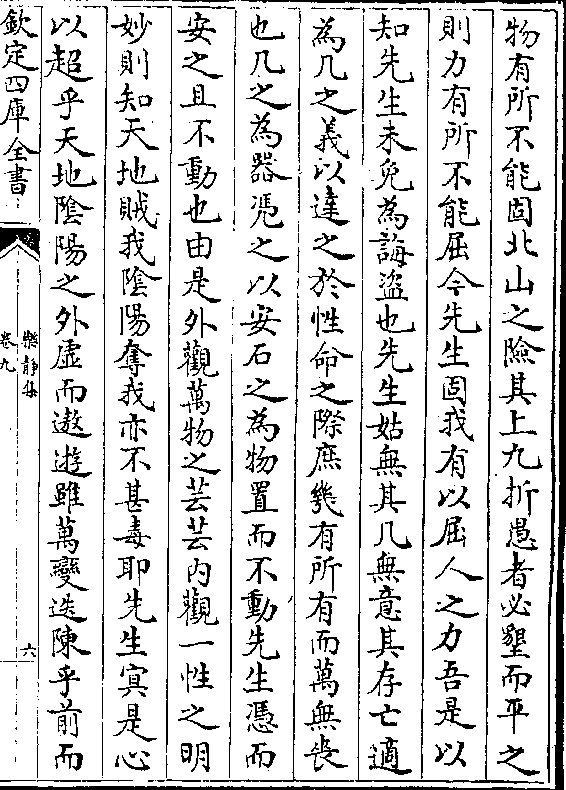 物有所不能固北山之險其上九折愚者必墾而平之
則力有所不能屈今先生固我有以屈人之力吾是以
知先生未免為誨盜也先生姑無其几無意其存亡適
為几之義以達之於性命之際庶幾有所有而萬無喪
也几之為器凭之以安石之為物置而不動先生憑而
安之且不動也由是外觀萬物之芸芸内觀一性之明
妙則知天地賊我陰陽奪我亦不甚毒耶先生寘是心
以超乎天地陰陽之外虛而遨遊雖萬變迭陳乎前而
欽定四庫全書
樂静集
卷九
六